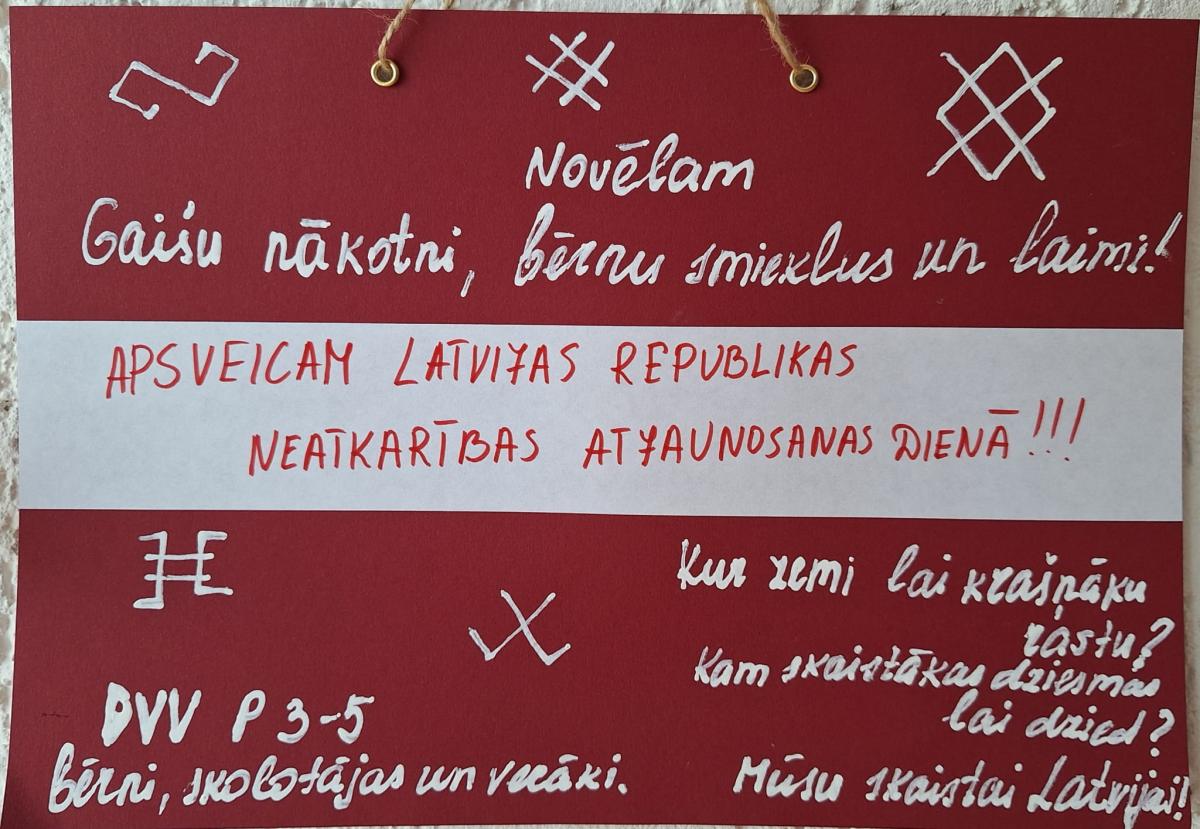 Novēlam
Gaišu nākotni, bērnu smieklus un laimi!
APSVEICAM LATVIJAS REPUBLIKAS
NEATKARĪBAS ATJAUNOSANAS DIENĀ!!!
Kur zemi lai krašņāku
rastu?
Kam skaistākas dziesmas
lai dzied?
DVV P 3-5
bērni, skolotājas un vecāki.
Mūsu skaistai Latvijai!